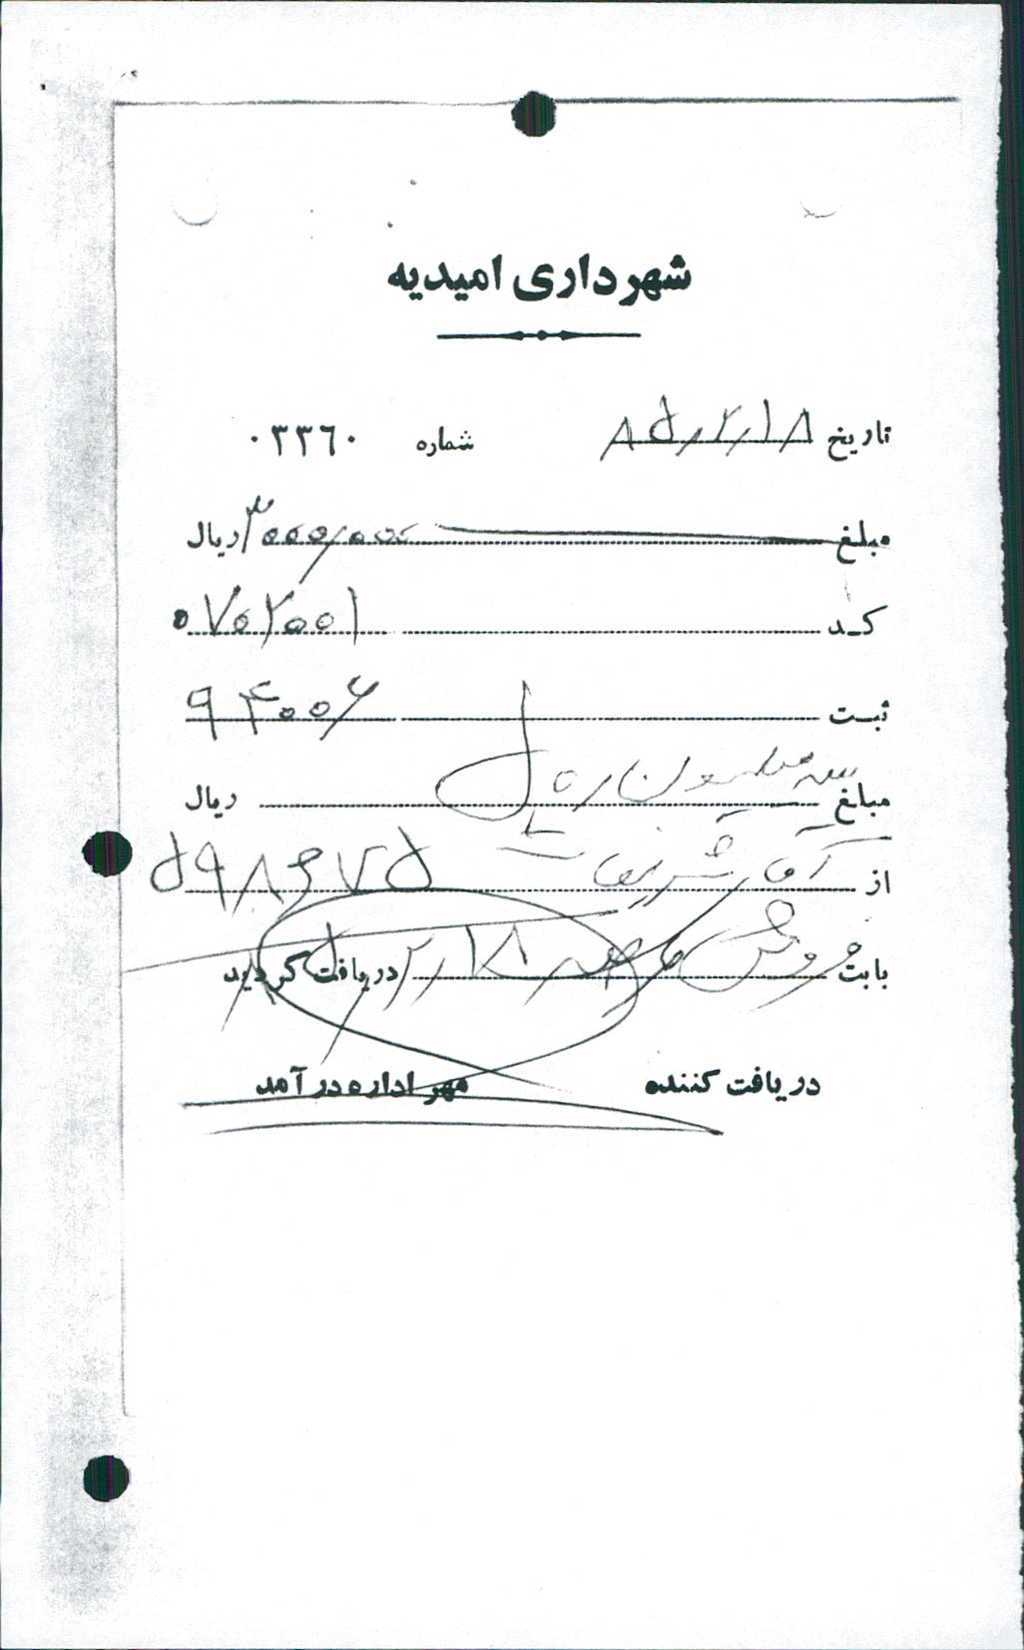 شهرداری امیدیه
تاریخ ۸۵/۲/۱۸ شماره ۰۳۳۶۰
مبلغ ۳۰۰۰/۰۰۰ ریال
کد ۰۷۰۲۰۰۱
ثبت ۹۴۰۰۶
مبلغ سه میلیون ریال ریال
از آقای ۵۹۸۶۷۵
بابت فروش دریافت گردید
دریافت کننده مهر اداره درآمد